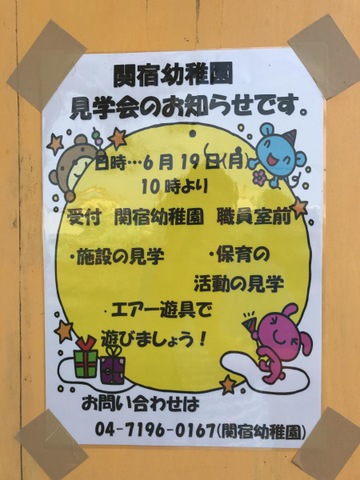 関宿幼稚園
見学会のお知らせです。
日時…6月19日(月)
10時より
受付 関宿幼稚園 職員室前
・施設の見学 ・保育の
活動の見学
・エアー遊具で
遊びましょう!
お問い合わせは
04-7196-0167(関宿幼稚園)